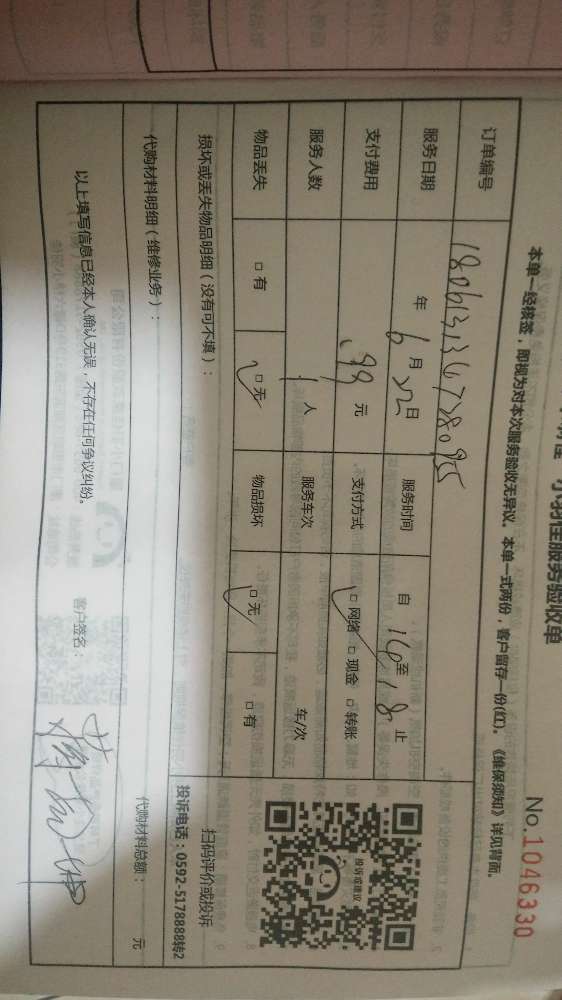 小羽佳服务验收单
No.1046330
本单一经核签，即视为对本次服务验收无异议。本单一式两份，客户留存一份(红)。《维保须知》详见背面。
订单编号
服务日期 年 6 月 22 日 服务时间 自 16 至 18 止
支付费用 .99 元 支付方式 □ 网络 □ 现金 □ 转账
服务人数 1 人 服务车次 车/次
物品丢失 □ 有 □ 无 物品损坏 □ 无 □ 有
投诉或建议
扫码评价或投诉
投诉电话：0592-5178888转2
损坏或丢失物品明细（没有可不填）：
代购材料明细（维修业务）： 代购材料总额： 元
以上填写信息已经本人确认无误，不存在任何争议纠纷。 客户签名：